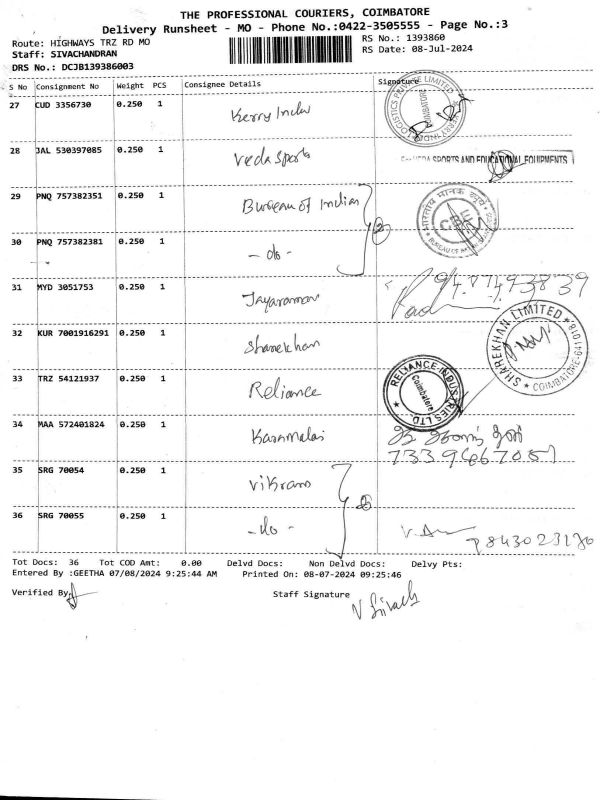 THE PROFESSIONAL COURIERS, COIMBATORE
Delivery Runsheet - MO - Phone No.:0422-3505555 - Page No.:3
Route: HIGHWAYS TRZ RD MO
RS No.: 1393860
Staff: SIVACHANDRAN
RS Date: 08-Jul-2024
DRS No.: DCJB139386003
S No Consignment No Weight PCS Consignee Details Signature
27 CUD 3356730 0.250 1 Kerry Indev
28 JAL 530397085 0.250 1 Veda Sports
For VEDA SPORTS AND EDUCATIONAL EQUIPMENTS
29 PNQ 757382351 0.250 1 Bureau of Indian
30 PNQ 757382381 0.250 1 - do - 2
31 MYD 3051753 0.250 1 Jayaraman
32 KUR 7001916291 0.250 1 Sharekhan
SHAREKHAN LIMITED ★ COIMBATORE-641018
33 TRZ 54121937 0.250 1 Reliance
RELIANCE INDUSTRIES LTD. ★ Coimbatore
34 MAA 572401824 0.250 1
7339667051
35 SRG 70054 0.250 1 Vikram
36 SRG 70055 0.250 1 - do -
9843023130
Tot Docs: 36 Tot COD Amt: 0.00 Delvd Docs: Non Delvd Docs: Delvy Pts:
Entered By :GEETHA 07/08/2024 9:25:44 AM Printed On: 08-07-2024 09:25:46
Verified By:
Staff Signature
V Sivach